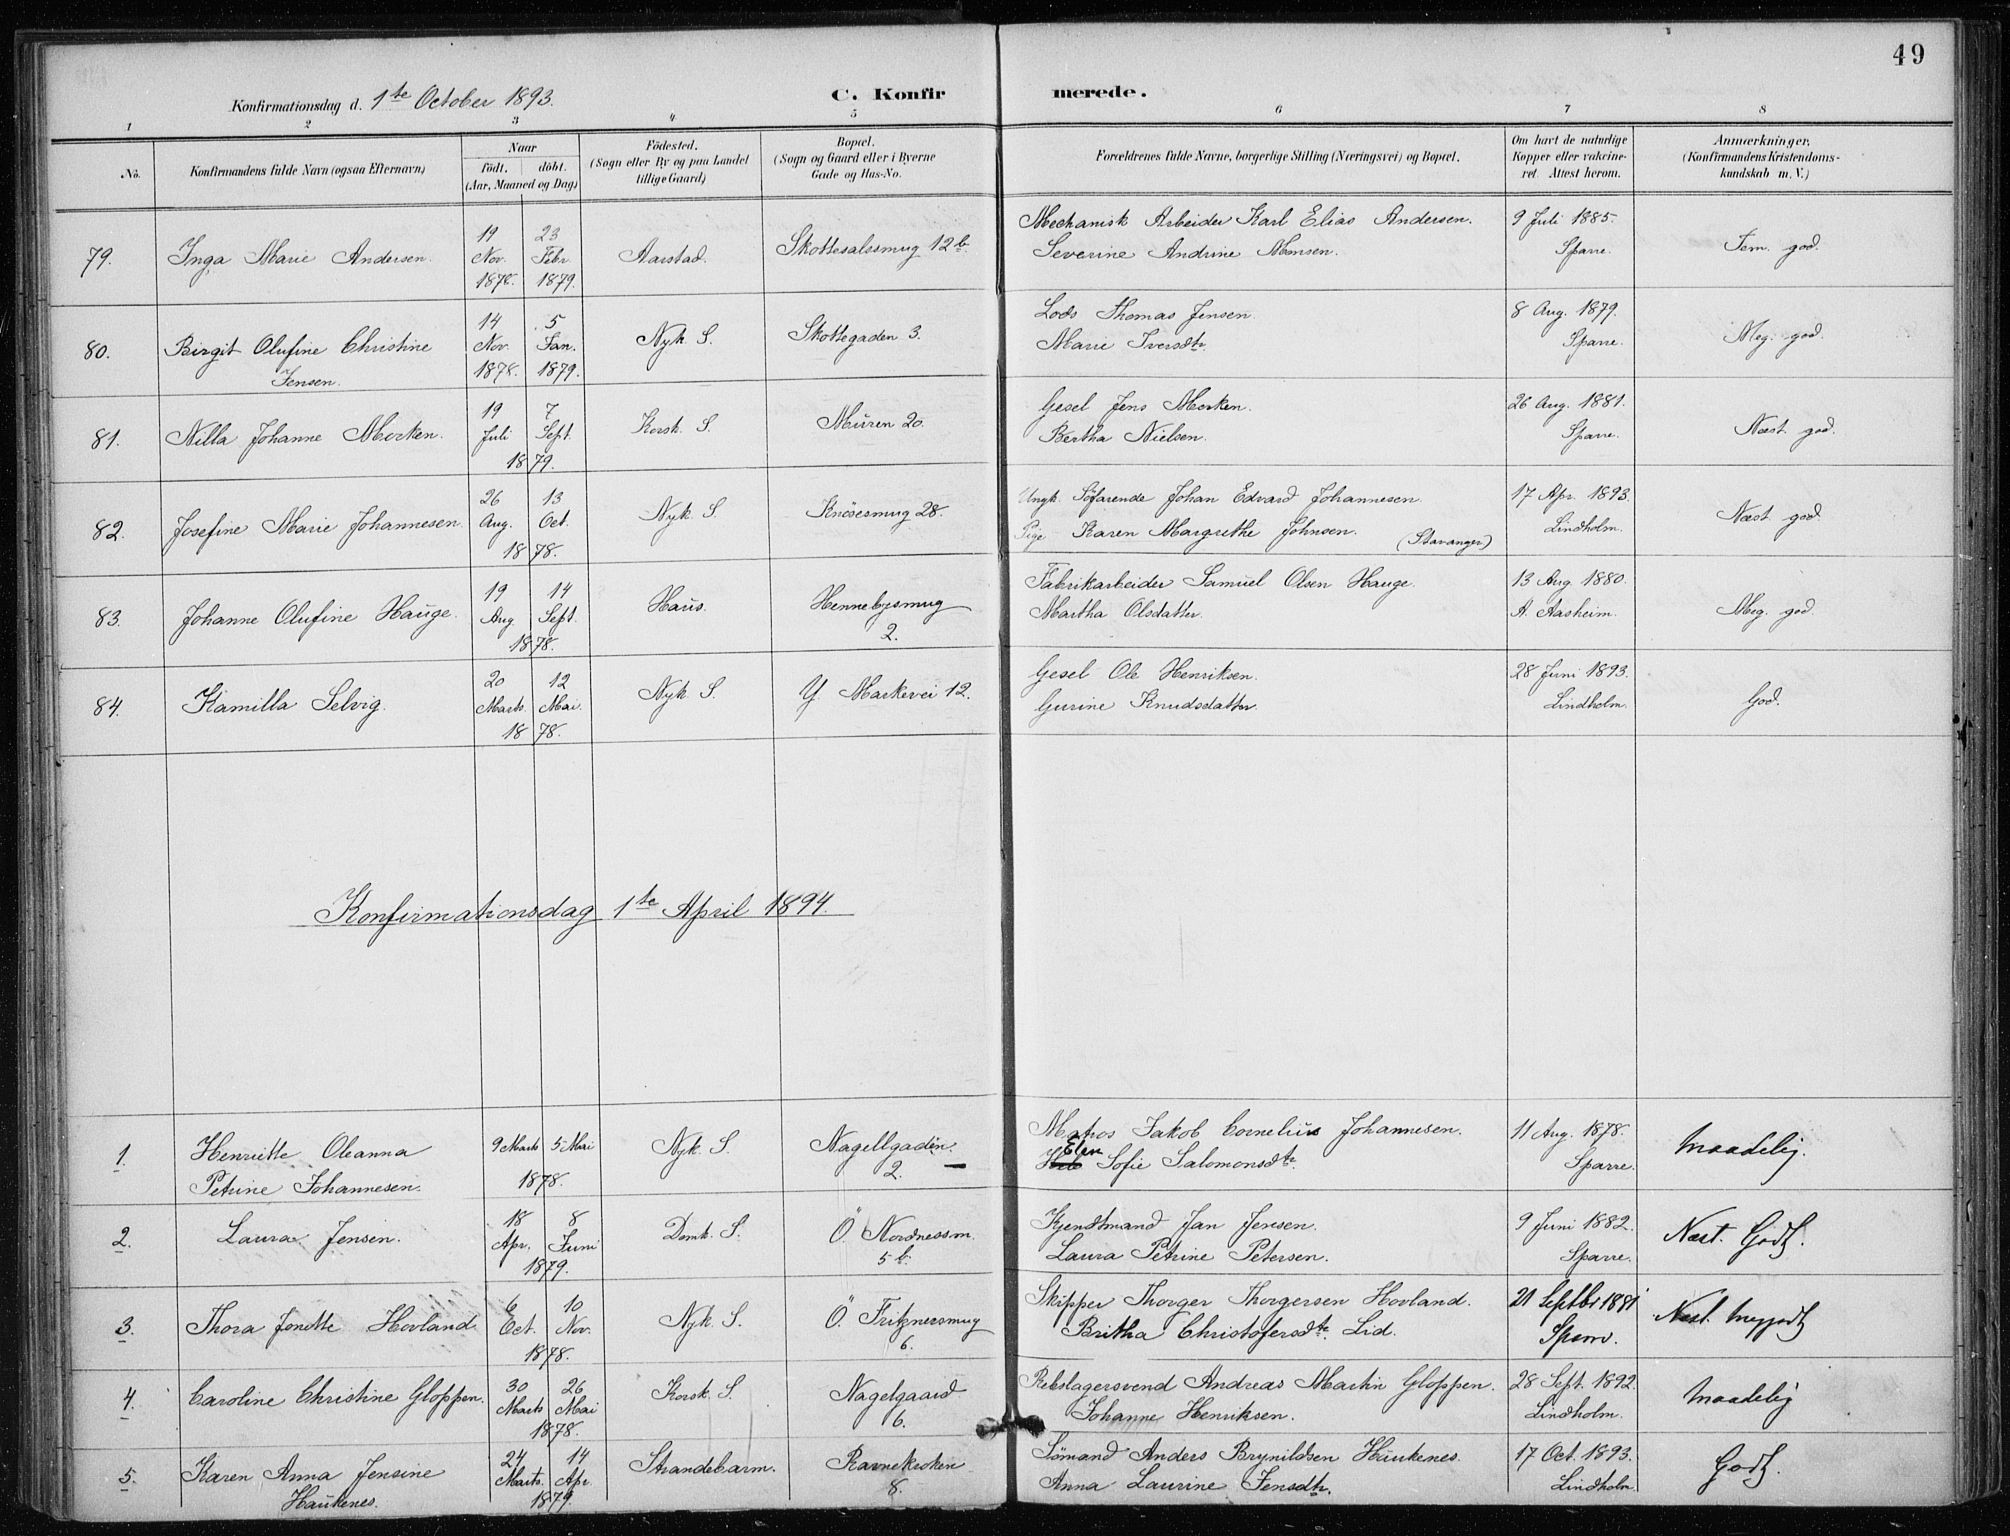 49
Konfirmationsdag d. 1ste October 1893.
C. Konfirmerede.
1 2 3 4 5 6 7 8
No.
Konfirmandens fulde Navn (ogsaa Efternavn)
Naar
födt. döbt.
(Aar, Maaned og Dag)
Födested.
(Sogn eller By og paa Landet
tillige Gaard)
Bopæl.
(Sogn og Gaard eller i Byerne
Gade og Hus-No.
Forældrenes fulde Navne, borgerlige Stilling (Næringsvei) og Bopæl.
Om havt de naturlige
Kopper eller vakcine-
ret. Attest herom.
Anmærkninger,
(Konfirmandens Kristendoms-
kundskab m. V.)
79. Inga Marie Andersen.
19 Nov. 1878. 23 Febr. 1879.
Aarstad.
Skottesalssmug 12b.
Mechanisk Arbeider Karl Elias Andersen.
Severine Andrine Monsen.
9 Juli 1885.
Sparre.
Tem. god.
80. Birgit Olufine Christine
Jensen.
14 Nov. 1878. 5 Jan. 1879.
Nyk. S.
Skottegaden 3.
Lods Thomas Jensen.
Marie Iversdtr.
8 Aug. 1879.
Sparre.
Meg. god.
81. Nilla Johanne Morken.
19 Juli 7 Sept. 1879.
Korsk. S.
Muren 20.
Gesel Jens Morken.
Bertha Nielsen.
26 Aug. 1881.
Sparre.
Næst god.
82. Josefine Marie Johannesen.
26 Aug. 13 Oct. 1878.
Nyk. S
Knösesmug 28.
Ungk. Söfarende Johan Edvard Johannesen.
Pige Karen Margrethe Johnsen. (Stavanger)
17 Apr. 1893.
Lindholm.
Næst god.
83. Johanne Olufine Hauge.
19 Aug. 14 Sept. 1878.
Haus.
Hennebysmug
2.
Fabrikarbeider Samuel Olsen Hauge.
Martha Olsdatter.
13 Aug. 1880.
A. Aasheim.
Meg. god.
84. Kamilla Selvig.
20 Marts. 12 Mai. 1878.
Nyk. S.
Y Markevei 12.
Gesel Ole Henriksen.
Gurine Knudsdatter.
28 Juni 1893.
Lindholm.
God.
Konfirmationsdag 1ste April 1894.
1. Henriette Oleanna
Petrine Johannesen.
9 Marts 5 Mai 1878.
Nyk. S.
Nagellgaden.
2.
Matros Jakob Cornelius Johannesen.
Elen Sofie Salomonsdtr.
11 Aug. 1878.
Sparre.
Maadelig.
2. Laura Jensen.
18 Apr. 8 Juni 1879.
Domk. S.
Ö. Nordnessm.
5 b.
Kjendtmand Jan Jensen.
Laura Petrine Petersen.
9 Juni 1882.
Sparre.
Næst. Godt.
3. Thora Jonette Hovland
6 Oct. 10 Nov. 1878.
Nyk. S.
Ö. Fritznersmug
6.
Skipper Thorger Thorgersen Hovland.
Britha Christofersdtr. Lid.
21 Septbr 1881
Sparre.
Næst. Meggodt
4. Caroline Christine Gloppen.
30 Marts 26 Mai 1878.
Korsk. S.
Nagelgaard
6.
Rebslagersvend Andreas Martin Gloppen.
Johanne Henriksen.
28 Sept. 1892.
Lindholm.
Maadelig
5. Karen Anna Jensine
Haukenes.
24 Marts. 14 Apr. 1879.
Strandebarm.
Ravnekroken
8.
Sömand Anders Brynildsen Haukenes.
Anna Laurine Jensdtr.
17 Oct. 1893.
Lindholm.
Godt.